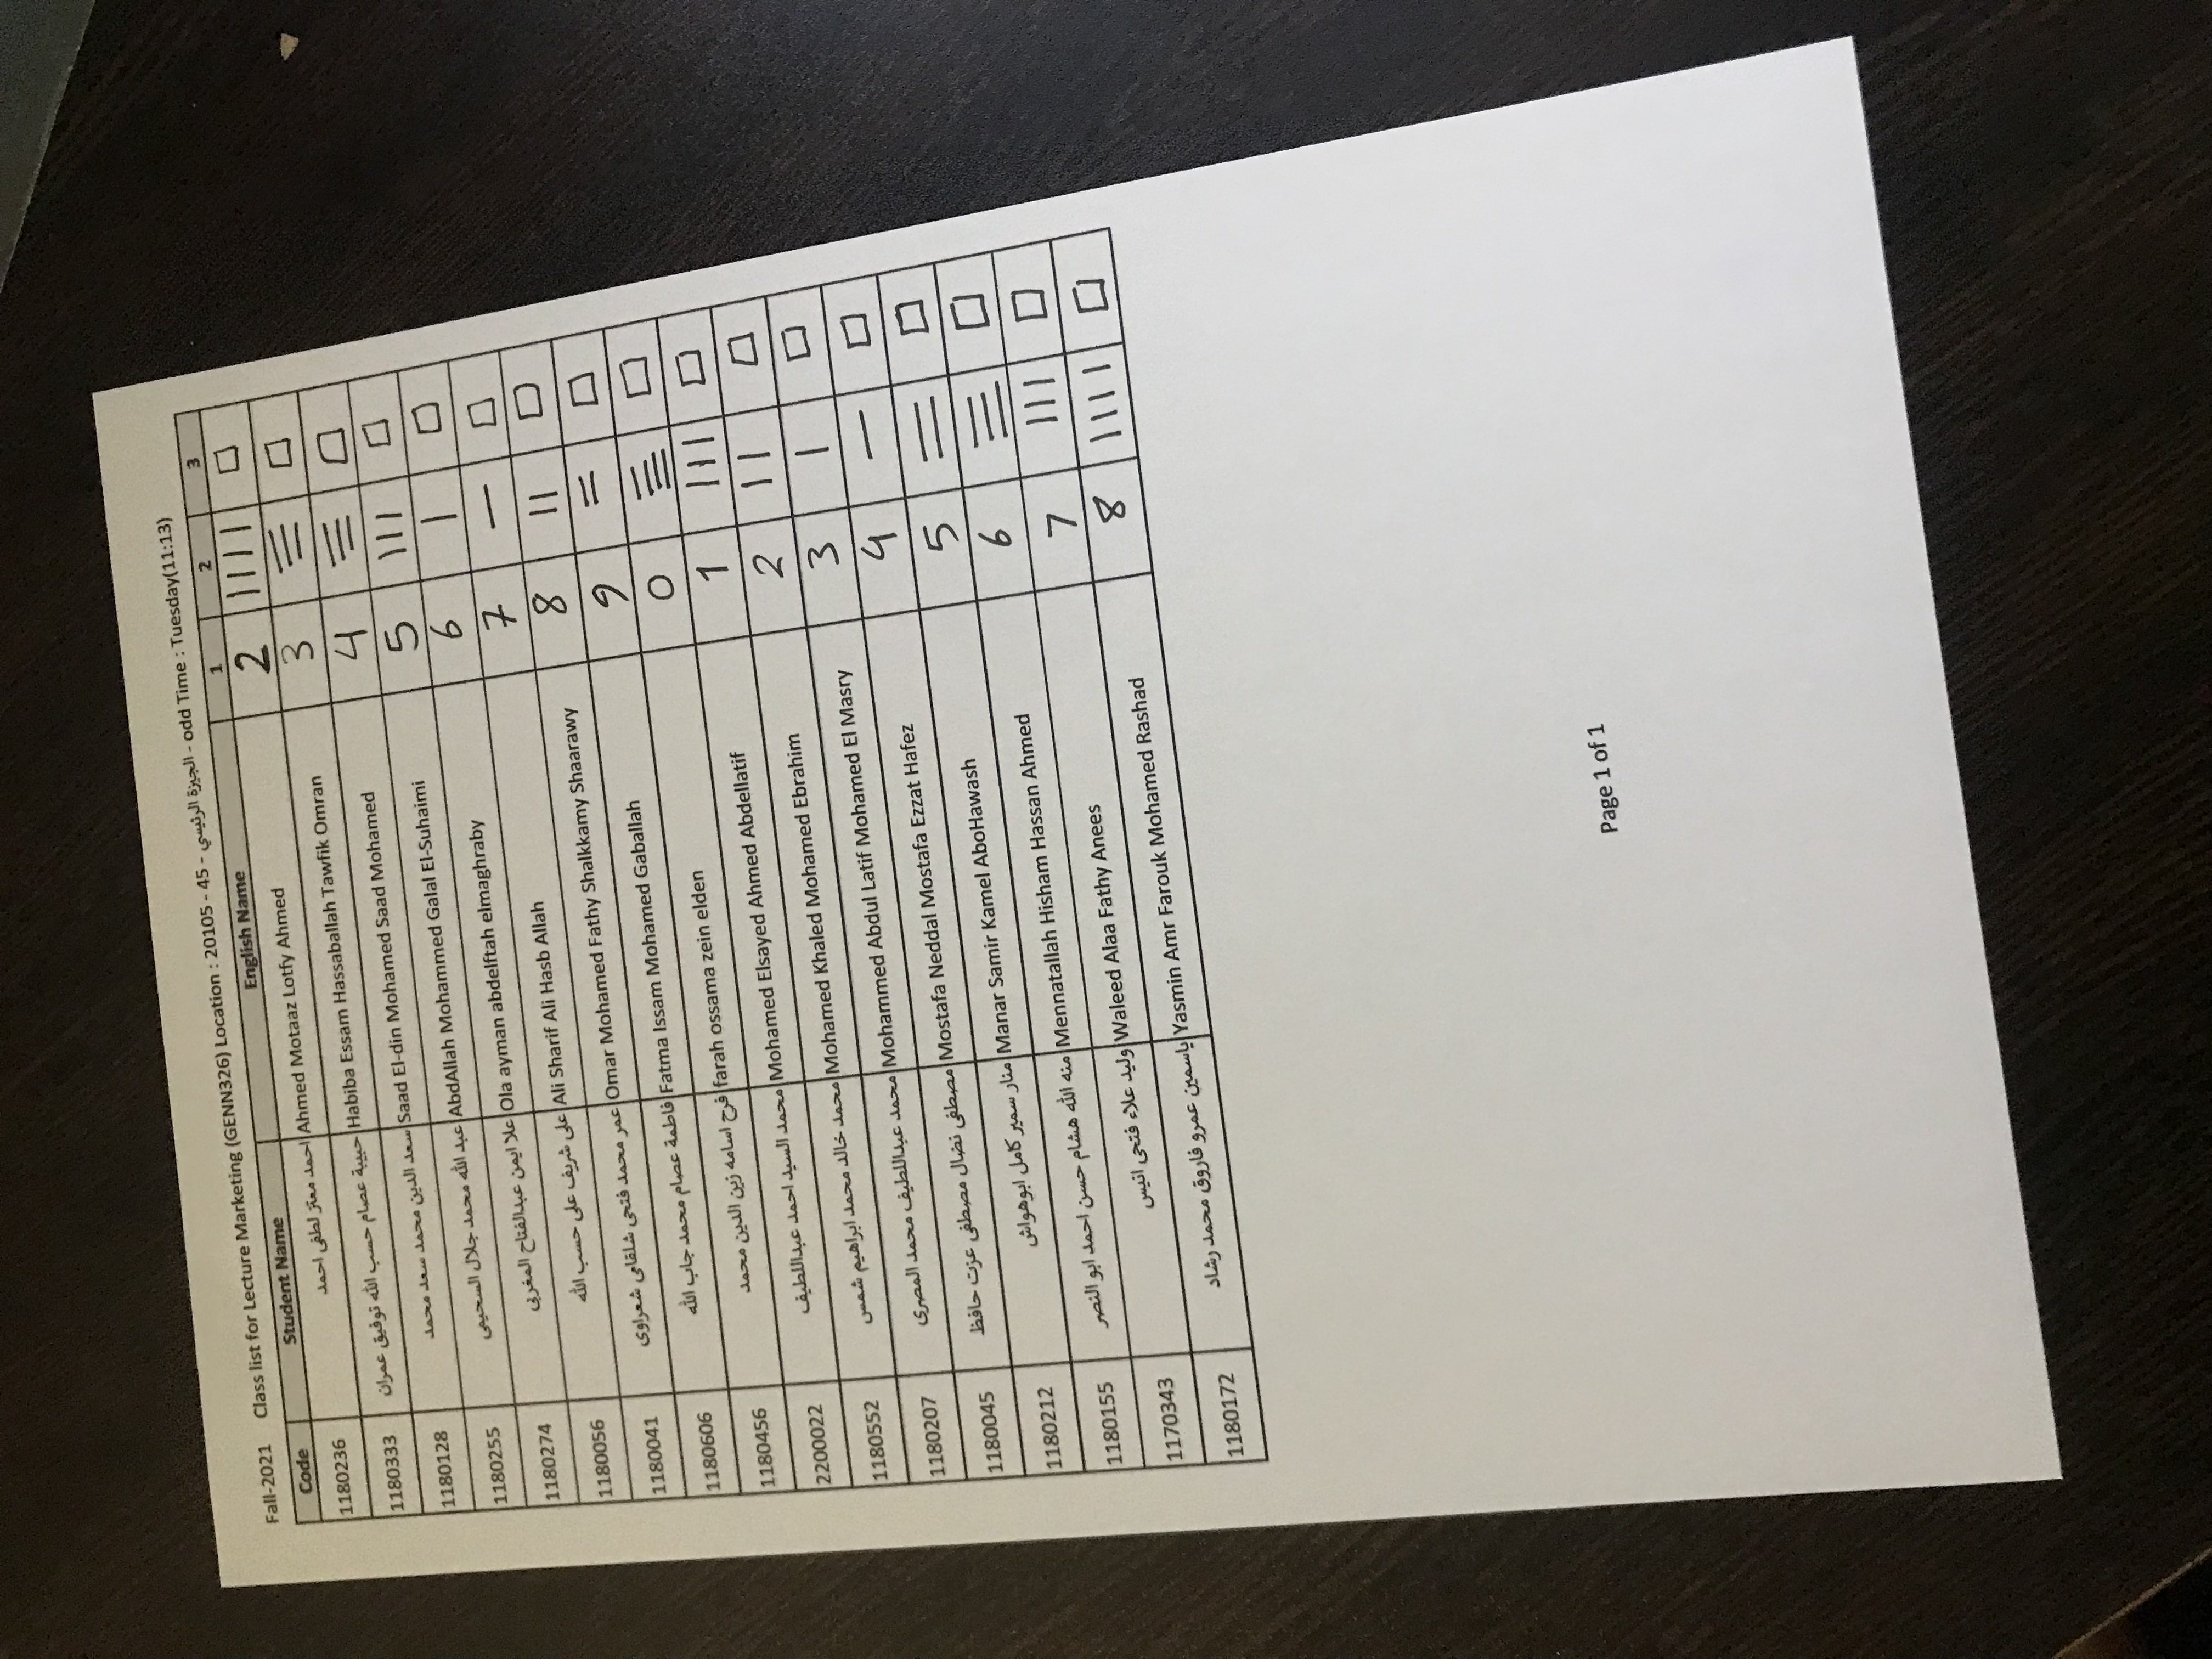 Fall-2021 Class list for Lecture Marketing (GENN326) Location : 20105 - 45 - الجيزة الرئيسي - odd Time : Tuesday(11:13)
Code Student Name English Name 1 2 3
1180236 احمد معتز لطفى احمد Ahmed Motaaz Lotfy Ahmed 2 ||||
1180333 حبيبة عصام حسب الله توفيق عمران Habiba Essam Hassaballah Tawfik Omran 3
1180128 سعد الدين محمد سعد محمد Saad El-din Mohamed Saad Mohamed 4
1180255 عبد الله محمد جلال السحيمى AbdAllah Mohammed Galal El-Suhaimi 5 |||
1180274 علا ايمن عبدالفتاح المغربى Ola ayman abdelftah elmaghraby 6 |
1180056 على شريف على حسب الله Ali Sharif Ali Hasb Allah 7 —
1180041 عمر محمد فتحى شلقامى شعراوى Omar Mohamed Fathy Shalkkamy Shaarawy 8 ||
1180606 فاطمة عصام محمد جاب الله Fatma Issam Mohamed Gaballah 9 =
1180456 فرح اسامه زين الدين محمد farah ossama zein elden 0
2200022 محمد السيد احمد عبداللطيف Mohamed Elsayed Ahmed Abdellatif 1 |||
1180552 محمد خالد محمد ابراهيم شمس Mohamed Khaled Mohamed Ebrahim 2 ||
1180207 محمد عبداللطيف محمد المصرى Mohammed Abdul Latif Mohamed El Masry 3 |
1180045 مصطفى نضال مصطفى عزت حافظ Mostafa Neddal Mostafa Ezzat Hafez 4 —
1180212 منار سمير كامل ابوهواش Manar Samir Kamel AboHawash 5
1180155 منه الله هشام حسن احمد ابو النصر Mennatallah Hisham Hassan Ahmed 6
1170343 وليد علاء فتحى انيس Waleed Alaa Fathy Anees 7 |||
1180172 ياسمين عمرو فاروق محمد رشاد Yasmin Amr Farouk Mohamed Rashad 8 ||||
Page 1 of 1